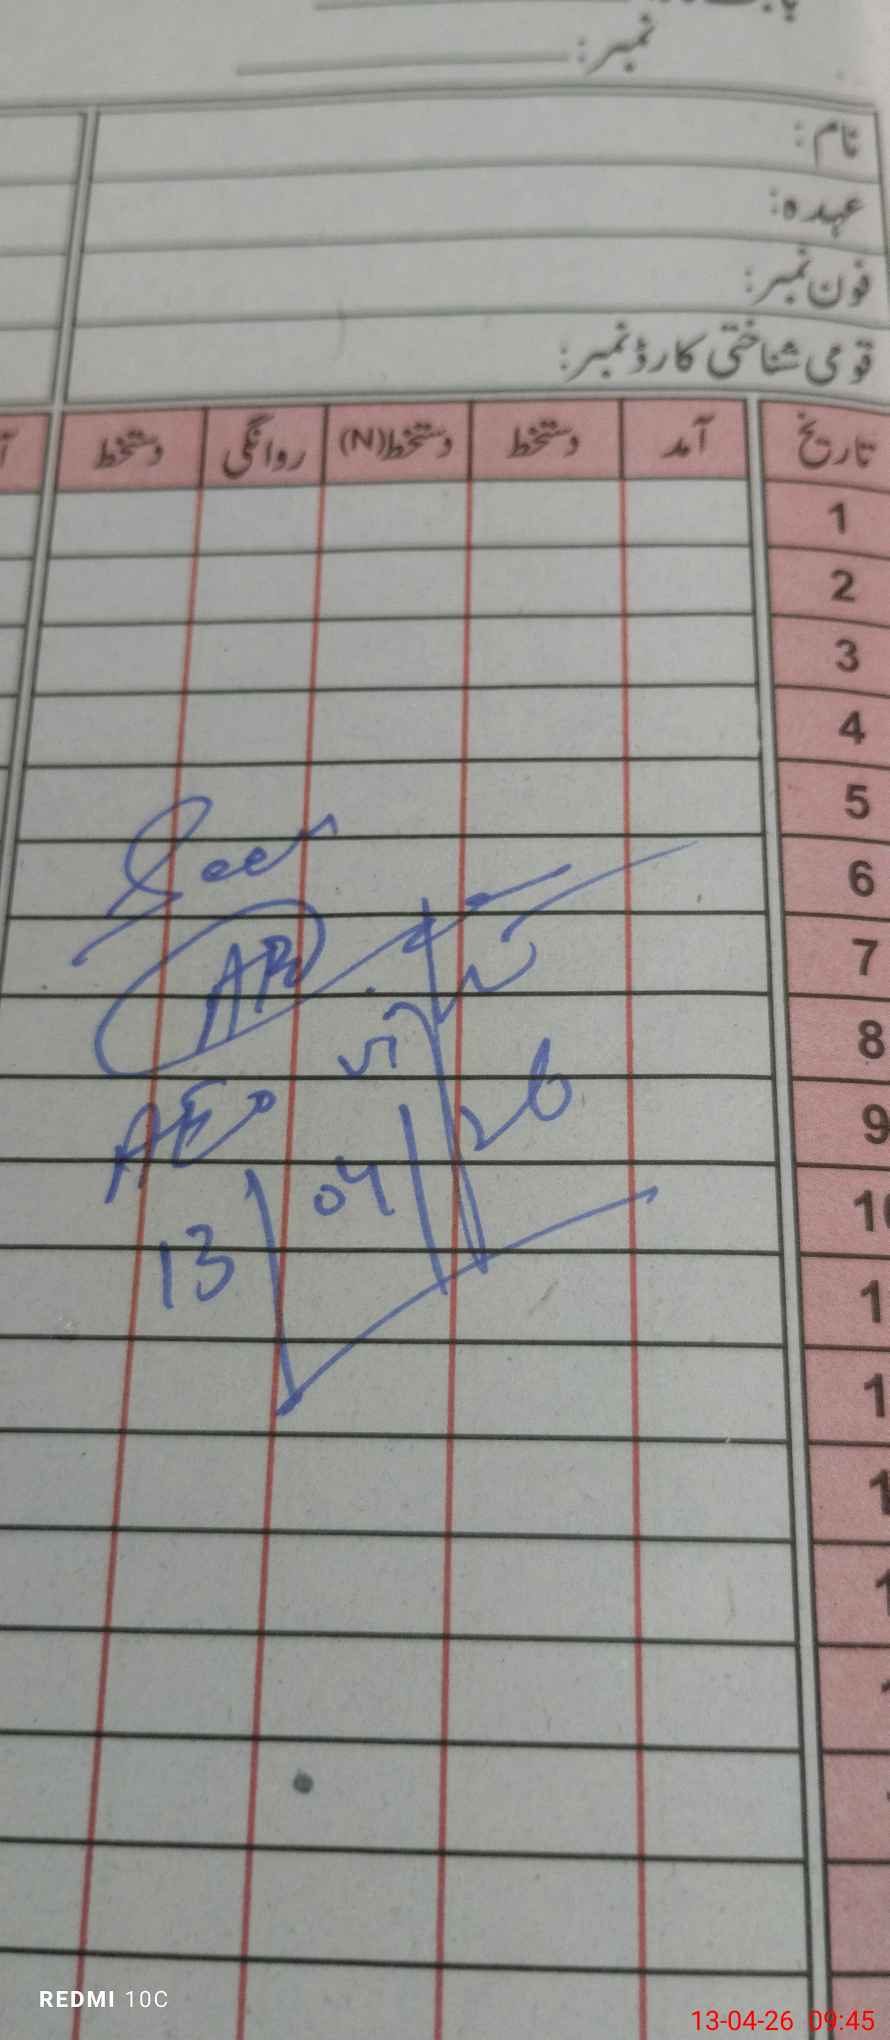 نمبر:
نام:
عہدہ:
فون نمبر:
قومی شناختی کارڈ نمبر:
تاریخ آمد دستخط دستخط(N) روانگی دستخط
1
2
3
4
5
6
7
8
9
10
1
1
1
1
See
AEO
13/04/26
REDMI 10C
13-04-26 09:45